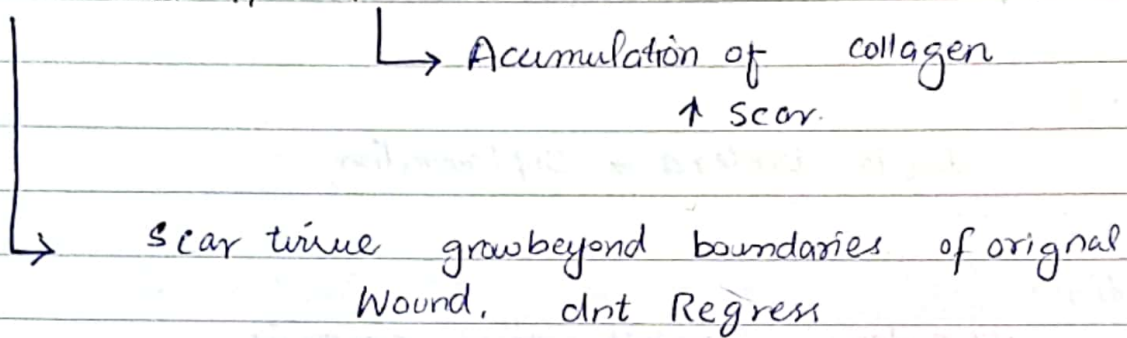 Acumulation of collagen
↑ scar.
Scar tissue grow beyond boundaries of orignal
Wound. dnt Regress